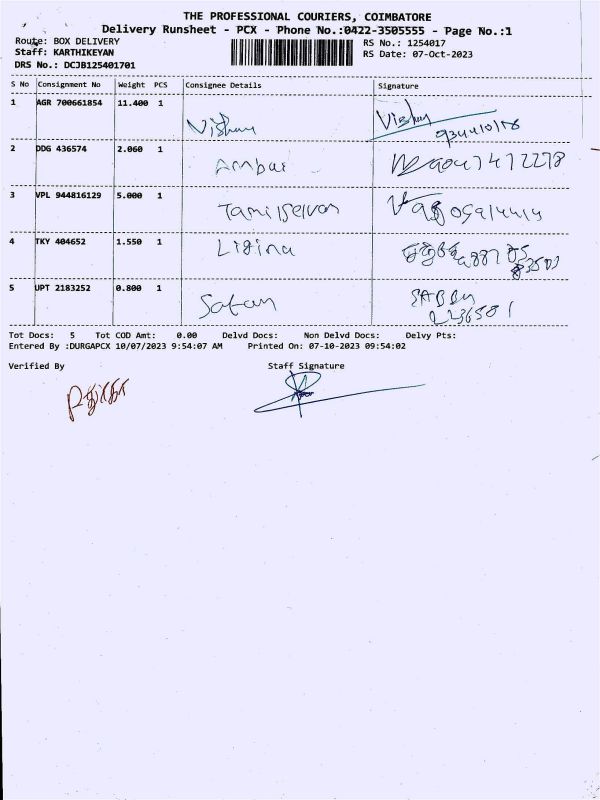 THE PROFESSIONAL COURIERS, COIMBATORE
Delivery Runsheet - PCX - Phone No.:0422-3505555 - Page No.:1
Route: BOX DELIVERY RS No.: 1254017
Staff: KARTHIKEYAN RS Date: 07-Oct-2023
DRS No.: DCJB125401701
S No Consignment No Weight PCS Consignee Details Signature
1 AGR 700661854 11.400 1
Vishnu Vishnu
2 DDG 436574 2.060 1
Ambui
3 VPL 944816129 5.000 1
Tamilselvan
4 TKY 404652 1.550 1 Ligina
5 UPT 2183252 0.800 1
Tot Docs: 5 Tot COD Amt: 0.00 Delvd Docs: Non Delvd Docs: Delvy Pts:
Entered By :DURGAPCX 10/07/2023 9:54:07 AM Printed On: 07-10-2023 09:54:02
Verified By Staff Signature